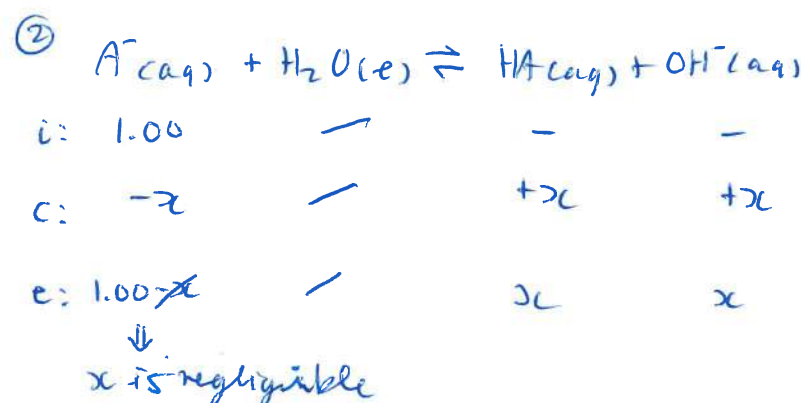 ②
A⁻(aq) + H₂O(e) ⇌ HA(aq) + OH⁻(aq)
i: 1.00 — - -
c: -x — +x +x
e: 1.00-x — x x
⇓
x is negliginble